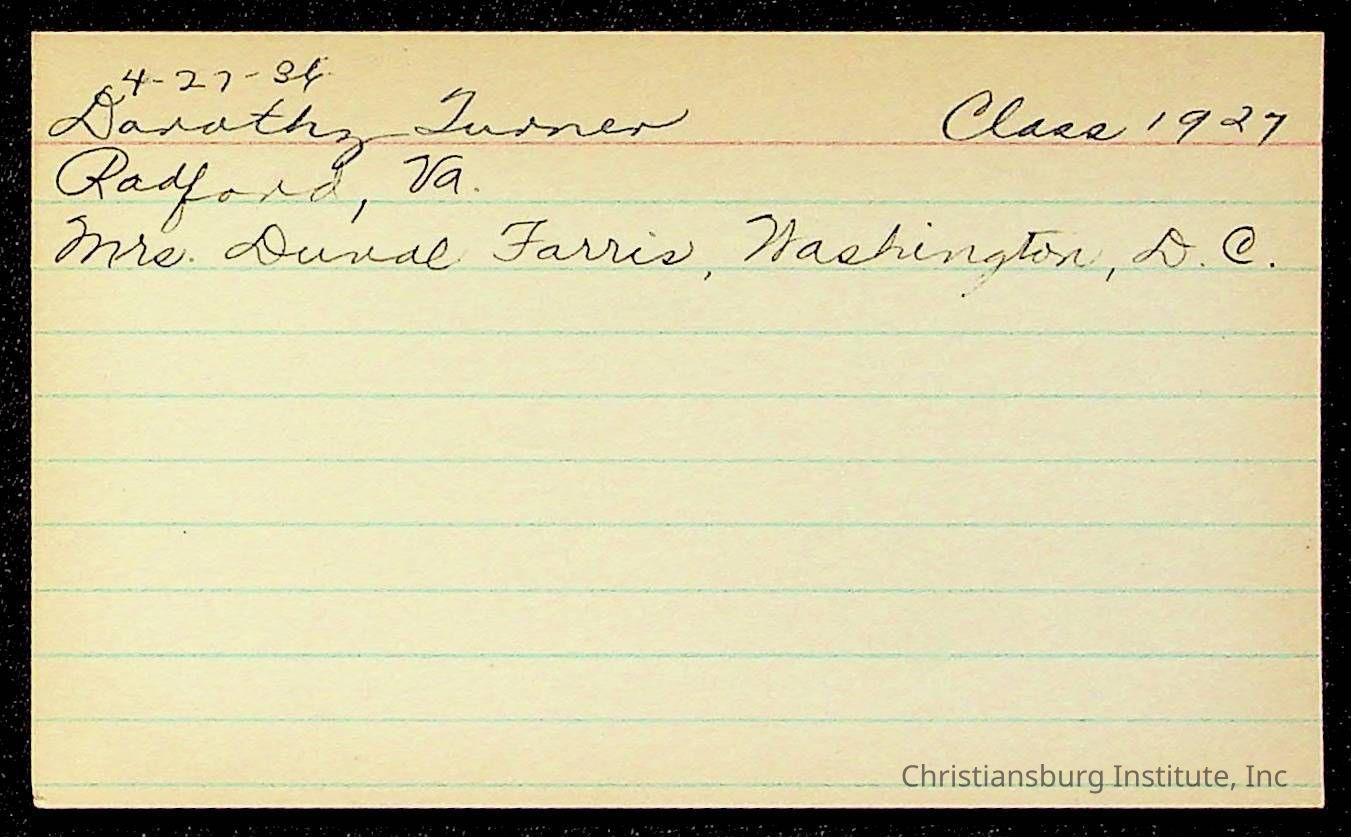 4-27-36
Dorothy Turner Class 1927
Radford, Va.
Mrs. Duval Farris, Washington, D.C.
Christiansburg Institute, Inc